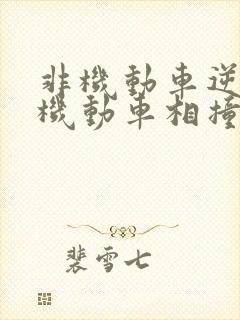 非機動車逆
機動車相撞
裴雪七